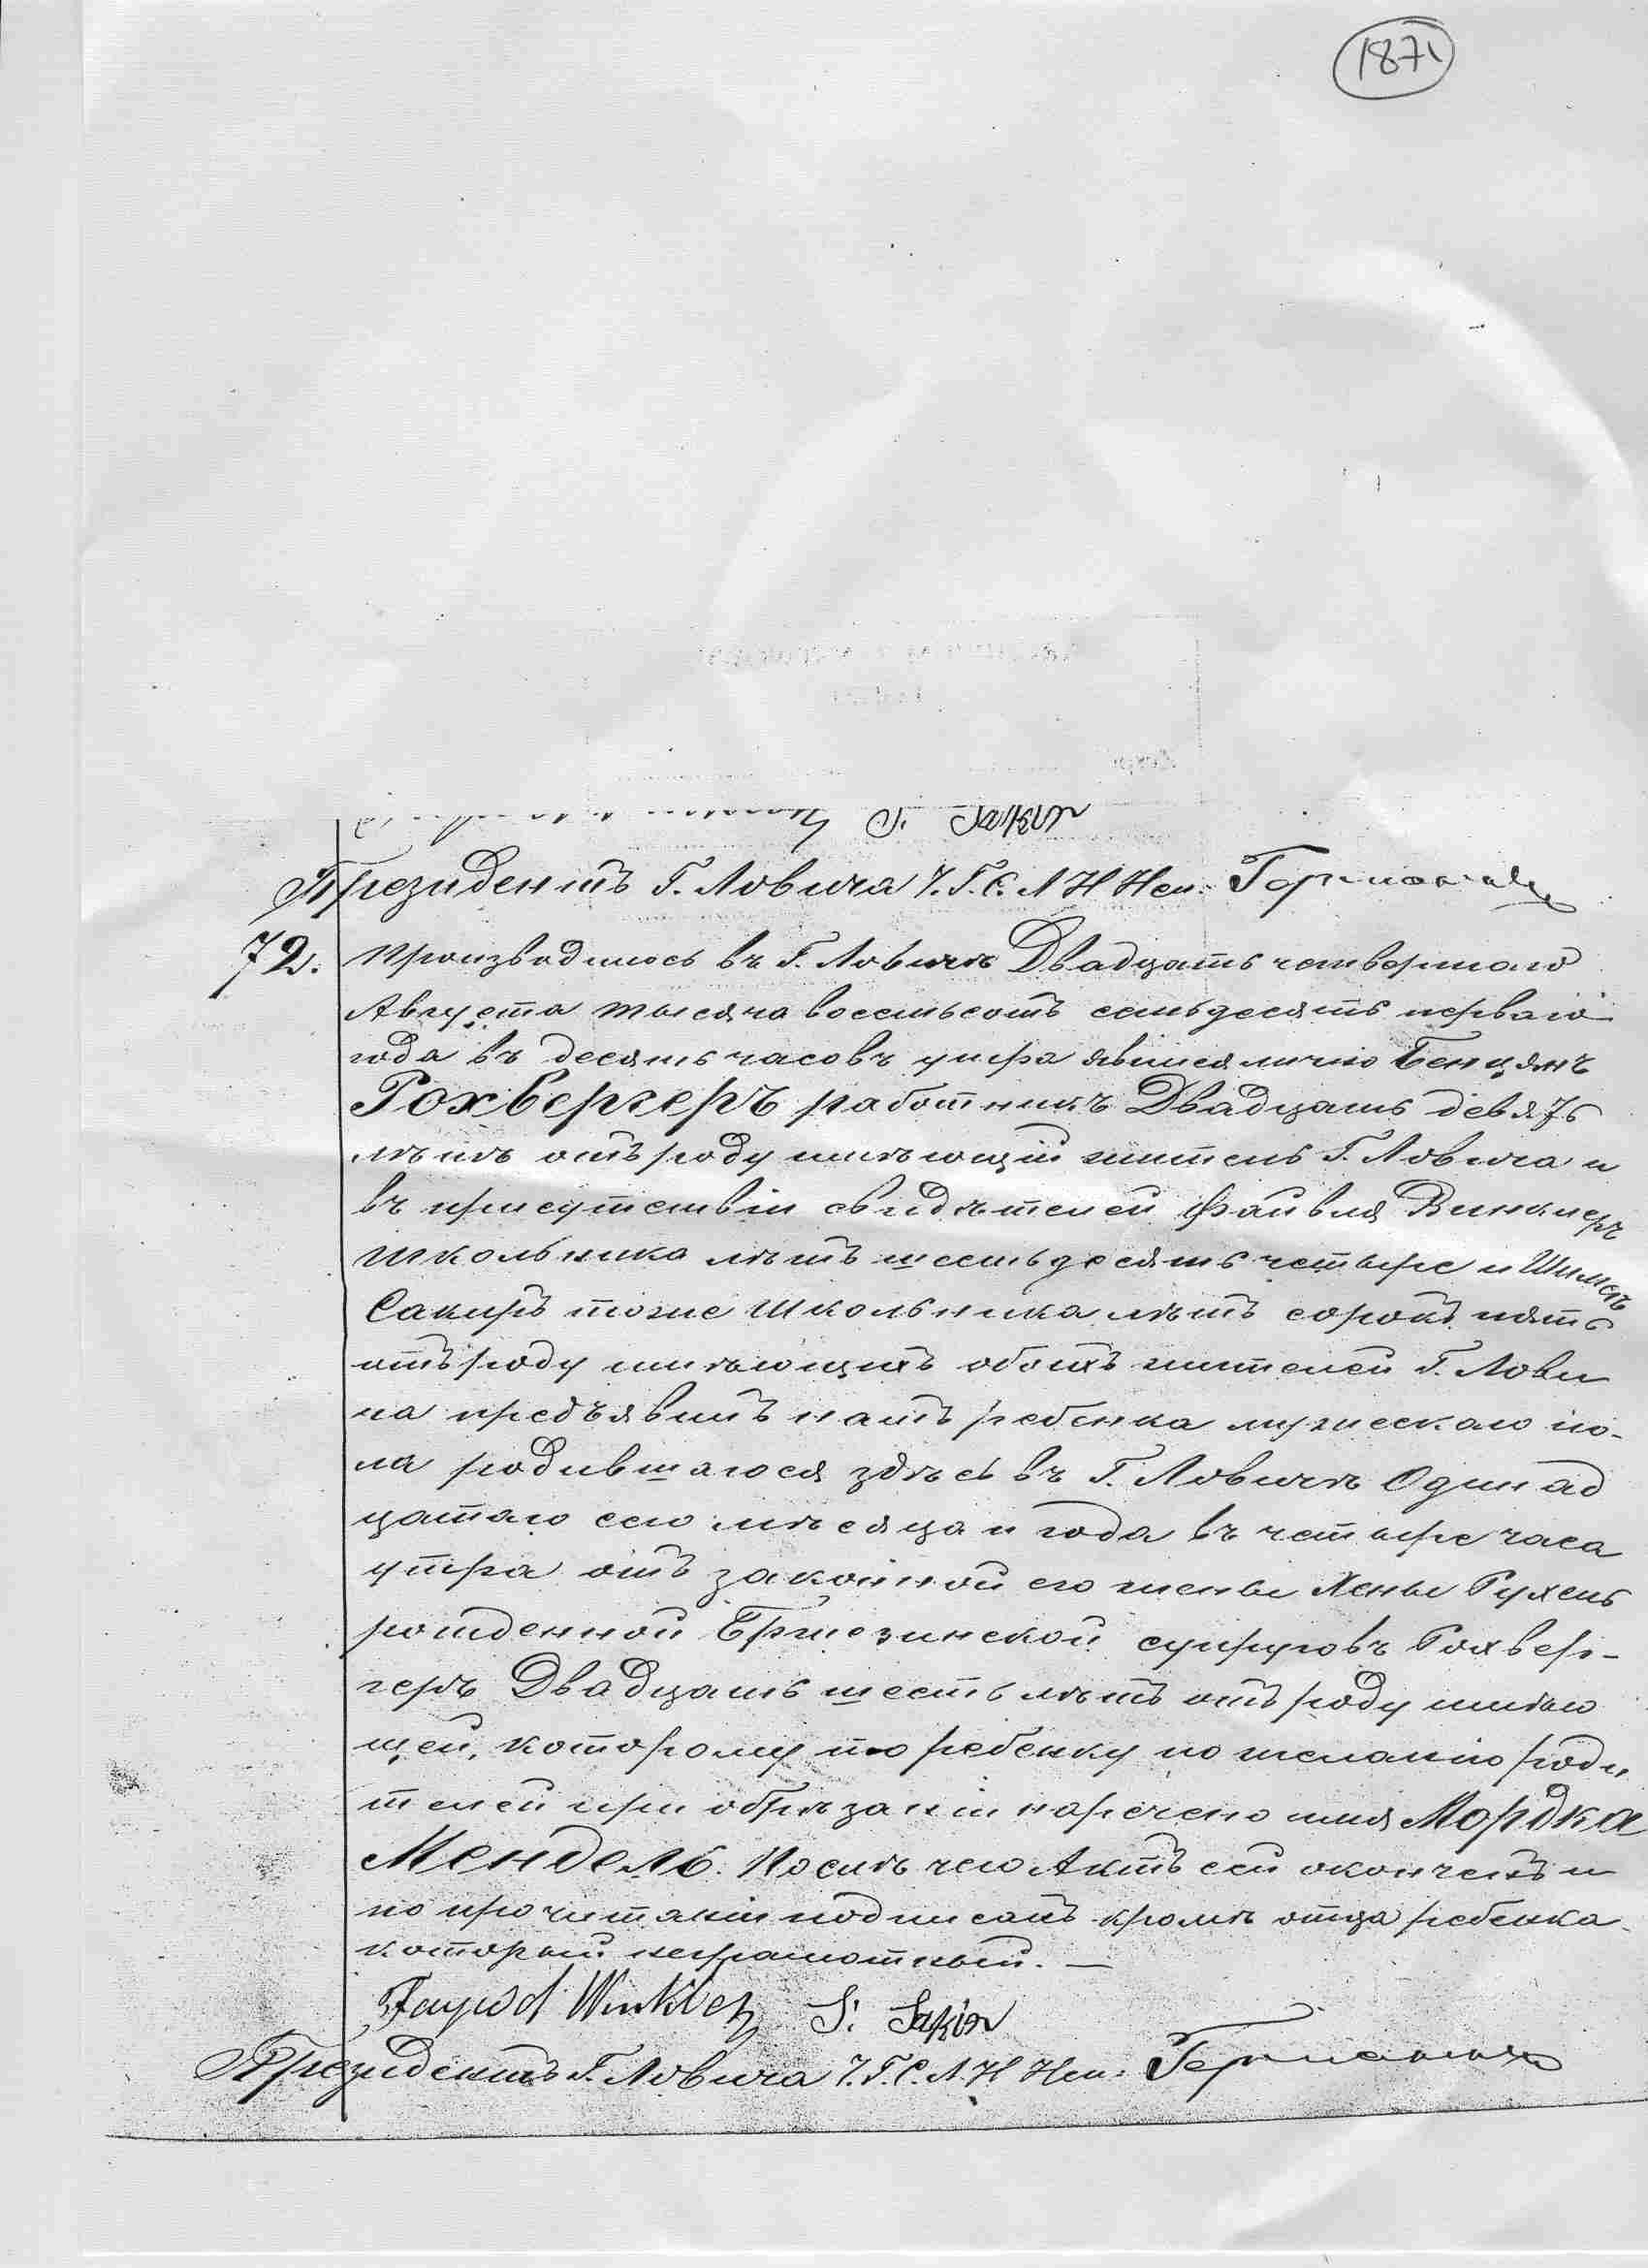 1871
S. Sakir
Президентъ Г. Ловича Ч. Г. С. Л Н Неи.
72. Производилось въ Г. Ловичѣ Двадцать четвертаго
Августа тысяча восемьсотъ семьдесятъ перваго
года въ десять часовъ утра явился лично Бенцянъ
Рохвергеръ работникъ Двадцать девять
лѣтъ отъ роду имѣющій житель Г. Ловича и
въ присутствіи свидѣтелей Файвля Винклеръ
Школьника лѣтъ шестьдесятъ четыре и
Сакиръ тоже Школьника лѣтъ сорокъ пять
отъ роду имѣющихъ обоихъ жителей Г. Лови
ча предъявилъ намъ ребенка мужескаго по-
ла родившагося здѣсь въ Г. Ловичѣ Одинад
цатаго сего мѣсяца и года въ четыре часа
утра отъ законной его жены Хены Рухель
рожденной Бржезинской супруговъ Рохвер-
геръ Двадцать шесть лѣтъ отъ роду имѣю
щей, которому то ребенку по желанію роди
телей при обрѣзаніи наречено имя Мордка
Мендель. Послѣ чего Актъ сей оконченъ и
по прочитаніи подписанъ кромѣ отца ребенка
который неграмотный. —
Winkler S. Sakir
Президентъ Г. Ловича Ч. Г. С. Л. Н Неи.